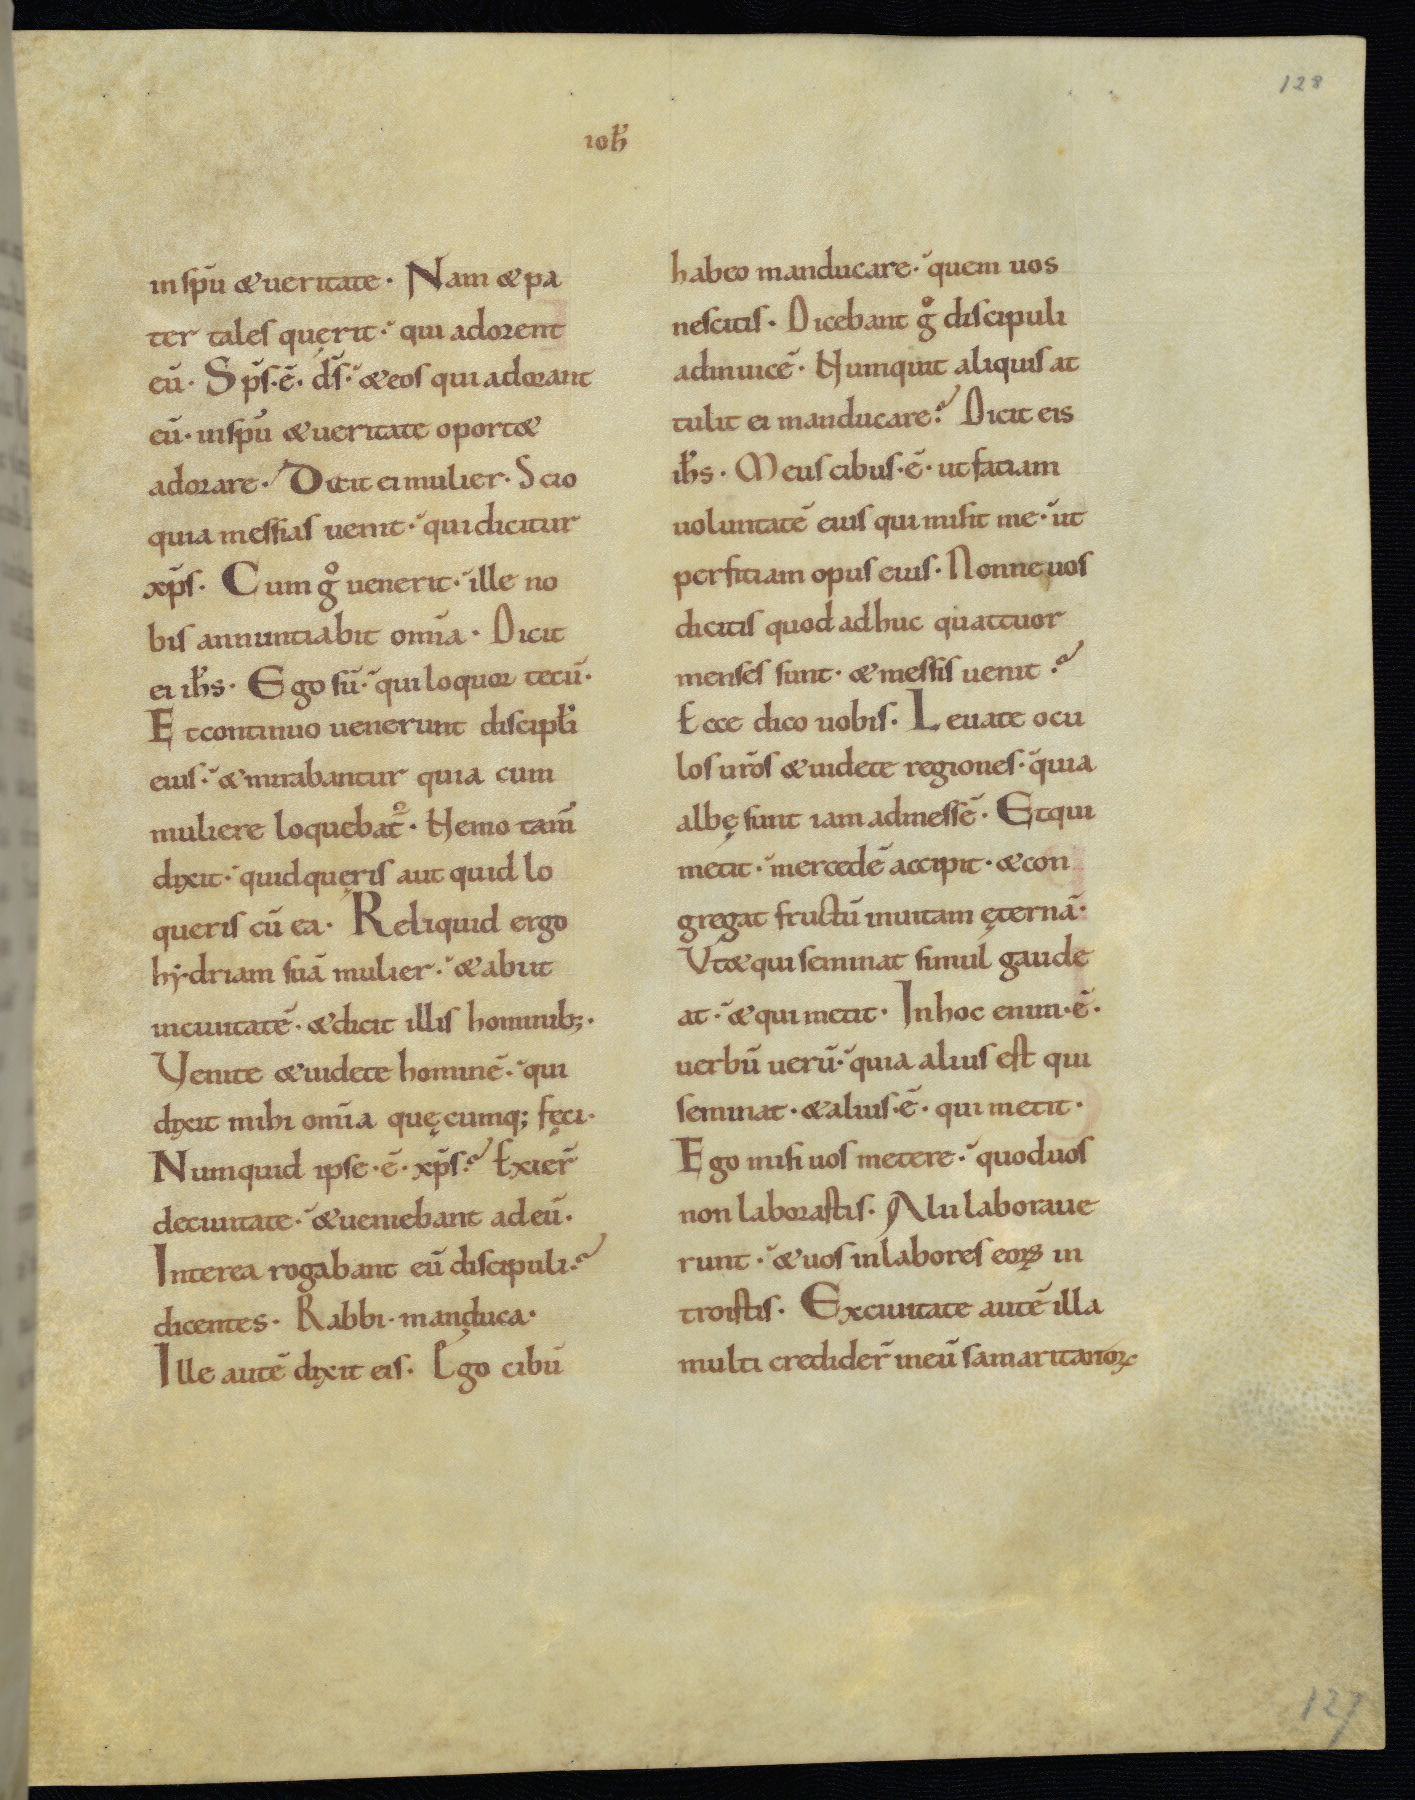 128
ioħ
in sp̄u &ueritate· Nam &pa
ter tales quęrit· qui adorent
eū· Sp̄s·ē· d̄s· &eos qui adorant
eū· insp̄u &ueritate oport&
adorare· Dicit ei mulier· Scio
quia messias uenit· qui dicitur
xp̄s· Cum g̊ uenerit· ille no
bis annuntiabit om̄ia· Dicit
ei ih̄s· Ego sū· qui loquor tecū·
Et continuo uenerunt discipl̄i
eius· &mirabantur quia cum
muliere loquebat᷑· Nemo tam̄
dixit· quid quęris aut quid lo
queris cū ea· Reliquid ergo
hẏdriam suā mulier· &abiit
inciuitatē· &dicit illis hominib;·
Venite &uidete hominē· qui
dixit mihi om̄ia quęcumq; fęci·
Numquid ipse·ē· xp̄s? Exier̄
deciuitate· &ueniebant adeū·
Interea rogabant eū discipuli·
dicentes· Rabbi· manduca·
Ille autē dixit eis· Ego cibū
habeo manducare· quem uos
nescitis· Dicebant g̊ discipuli
adinuicē· Numquit aliquis at
tulit ei manducare? Dicit eis
ih̄s· Meus cibus·ē· ut fatiam
uoluntatē eius qui misit me· ut
perfitiam opus eius· Nonne uos
dicitis quod adhuc quattuor
menses sunt· &messis uenit?
Ecce dico uobis· Leuate ocu
los ur̄os &uidete regiones· quia
albę sunt iam admessē· Et qui
metit· mercedē accipit· &con
gregat fructū inuitam ęternā·
Vt&qui seminat simul gaude
at· &qui metit· In hoc enim·ē·
uerbū uerū· quia alius est qui
seminat· &alius·ē· qui metit·
Ego misi uos metere· quod uos
non laborastis· Alii laboraue
runt· &uos inlabores eoꝝ in
troistis· Exciuitate autē illa
multi credider̄ ineū samaritanoꝝ
127